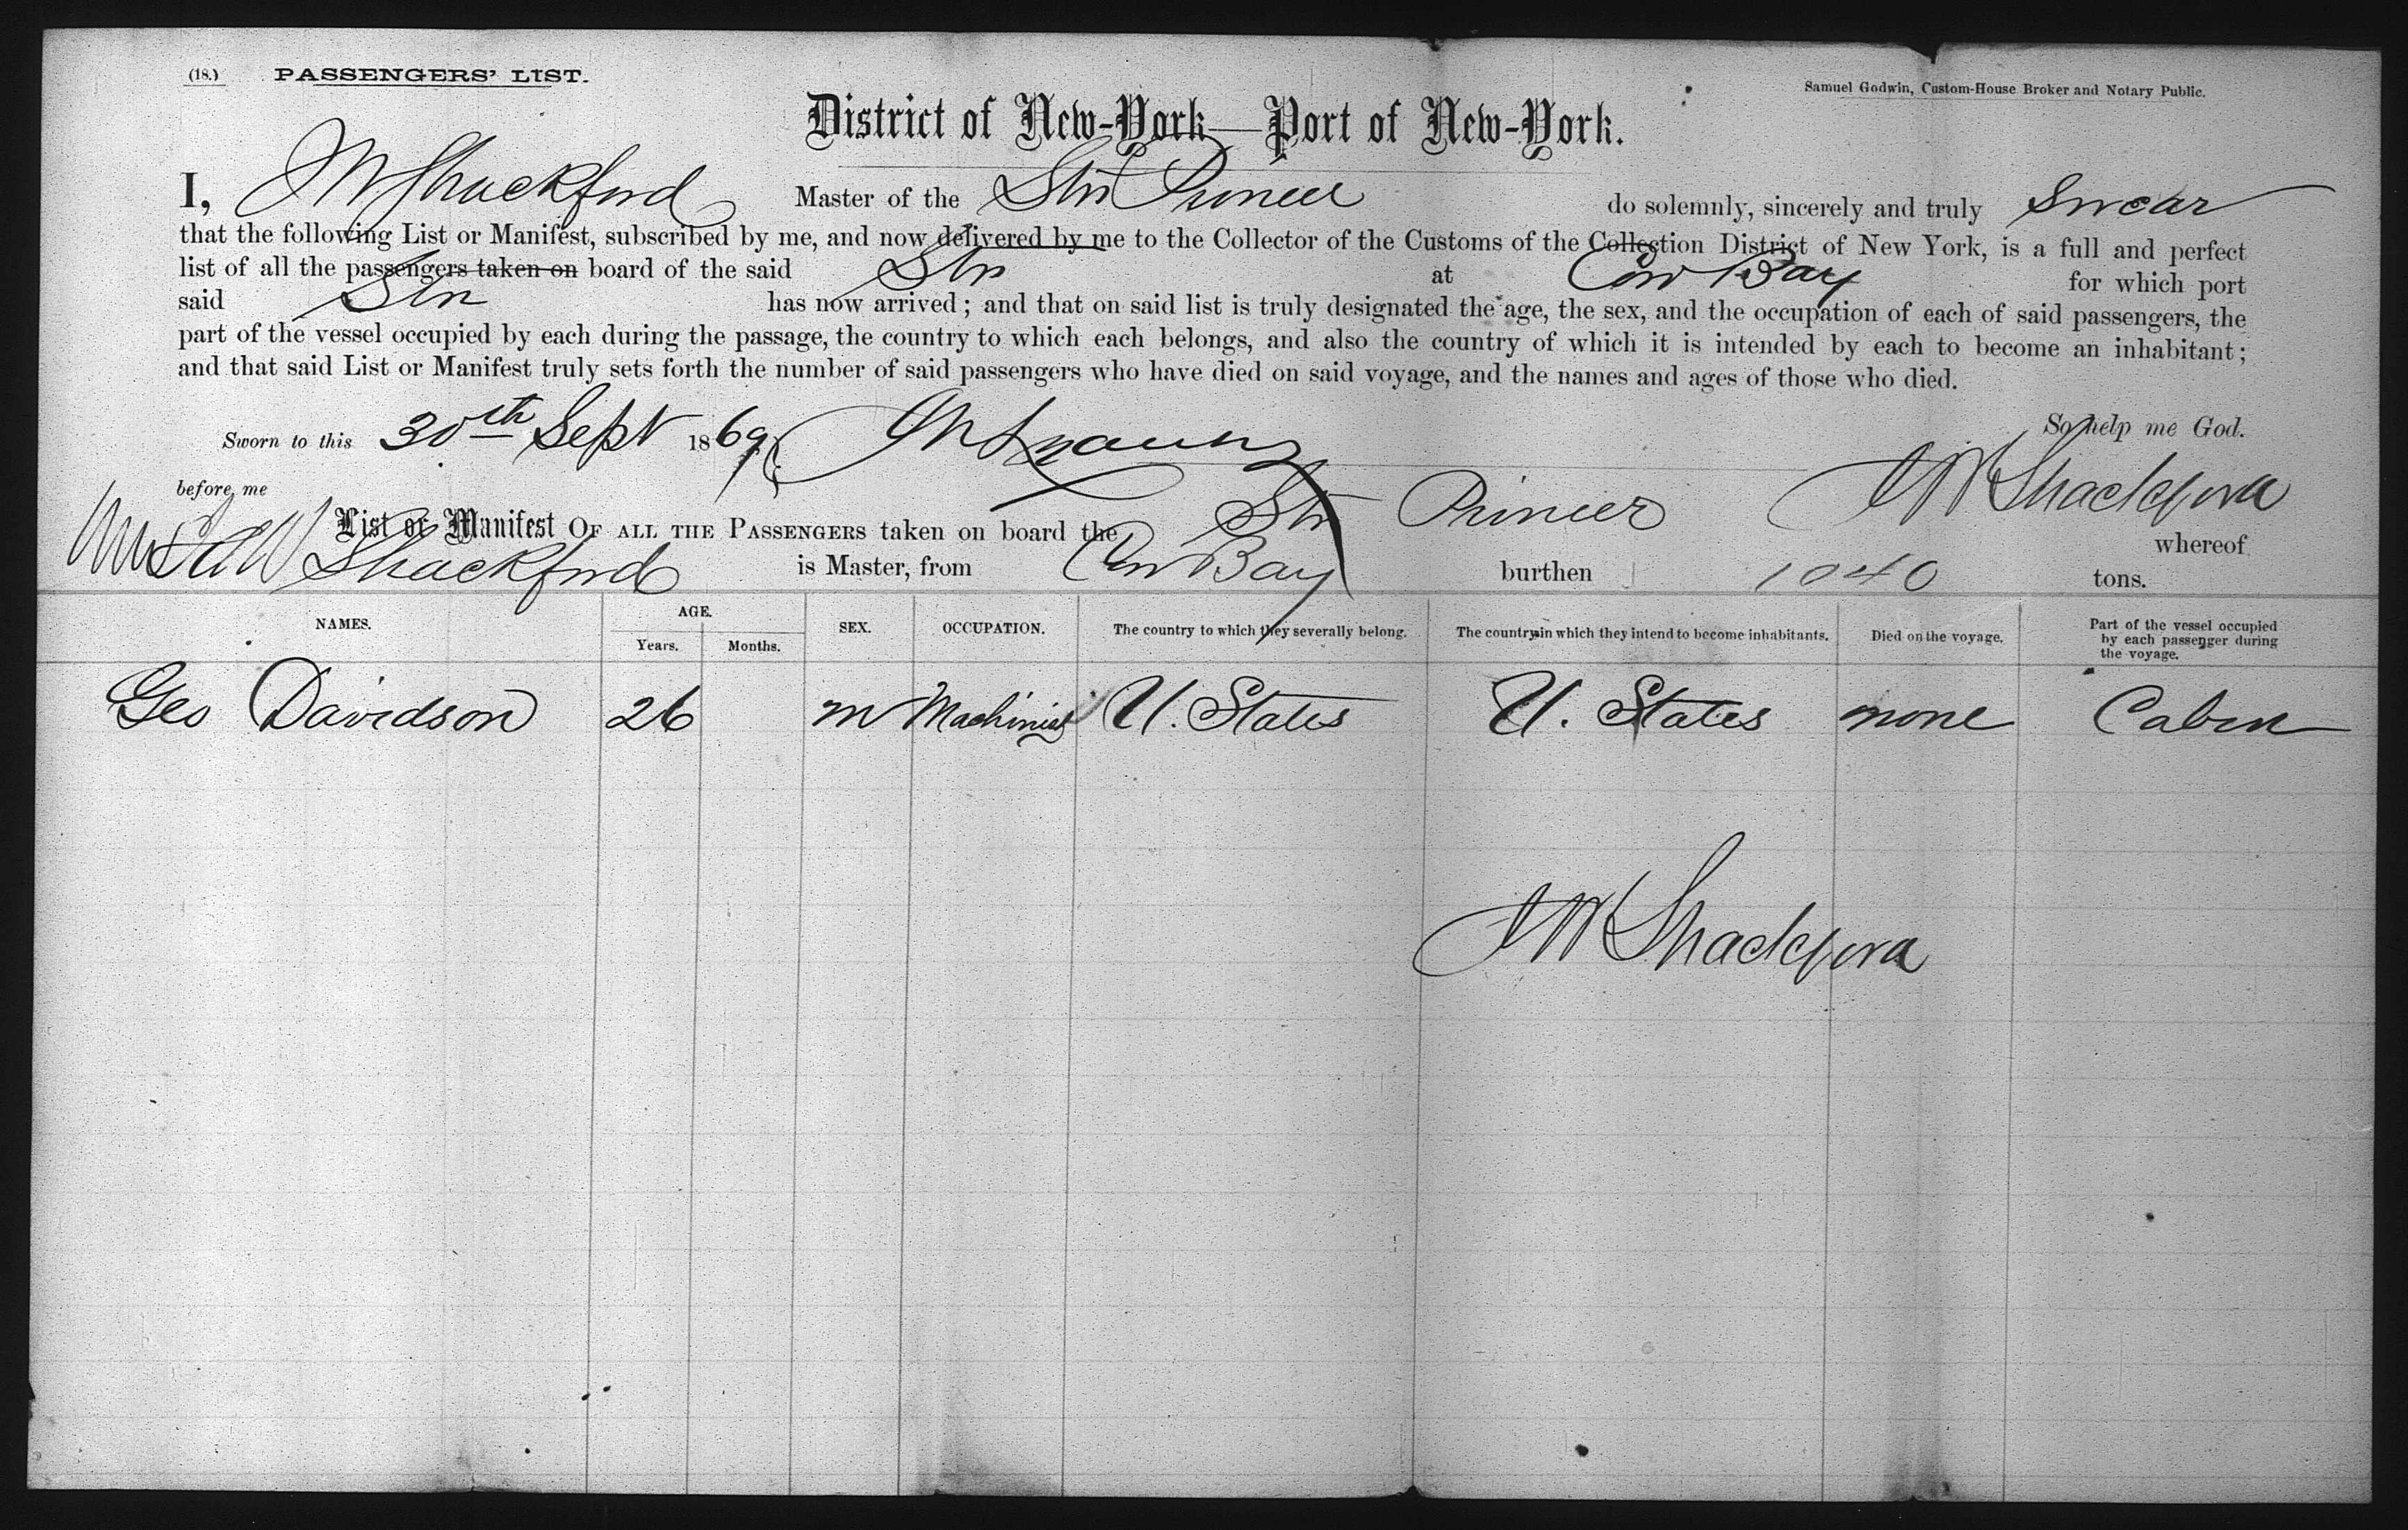 (18.) PASSENGERS' LIST.
Samuel Godwin, Custom-House Broker and Notary Public.
District of New-York—Port of New-York.
I, J W Shackford Master of the Str Pioneer do solemnly, sincerely and truly Swear
that the following List or Manifest, subscribed by me, and now delivered by me to the Collector of the Customs of the Collection District of New York, is a full and perfect
list of all the passengers taken on board of the said Str at Cow Bay for which port
said Str has now arrived; and that on said list is truly designated the age, the sex, and the occupation of each of said passengers, the
part of the vessel occupied by each during the passage, the country to which each belongs, and also the country of which it is intended by each to become an inhabitant;
and that said List or Manifest truly sets forth the number of said passengers who have died on said voyage, and the names and ages of those who died.
Sworn to this 30th Sept 1869 So help me God.
before me J W Shackford
List or Manifest OF ALL THE PASSENGERS taken on board the Str Pioneer whereof
J W Shackford is Master, from Cow Bay burthen 1040 tons.
NAMES. AGE. Years. Months. SEX. OCCUPATION. The country to which they severally belong. The country in which they intend to become inhabitants. Died on the voyage. Part of the vessel occupied by each passenger during the voyage.
Geo Davidson 26 m Machinist U. States U. States none Cabin
J W Shackford